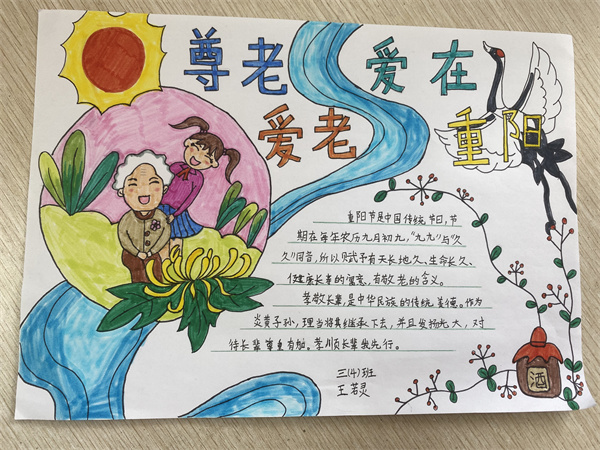 尊老
爱老
爱在
重阳
重阳节是中国传统节日,节
期在每年农历九月初九,“九九”与“久
久”同音,所以赋予有天长地久、生命长久、
健康长寿的寓意,有敬老的含义。
孝敬长辈,是中华民族的传统美德。作为
炎黄子孙,理当将其继承下去,并且发扬光大,对
待长辈尊重有加。孝顺长辈我先行。
三(4)班
王若灵
酒